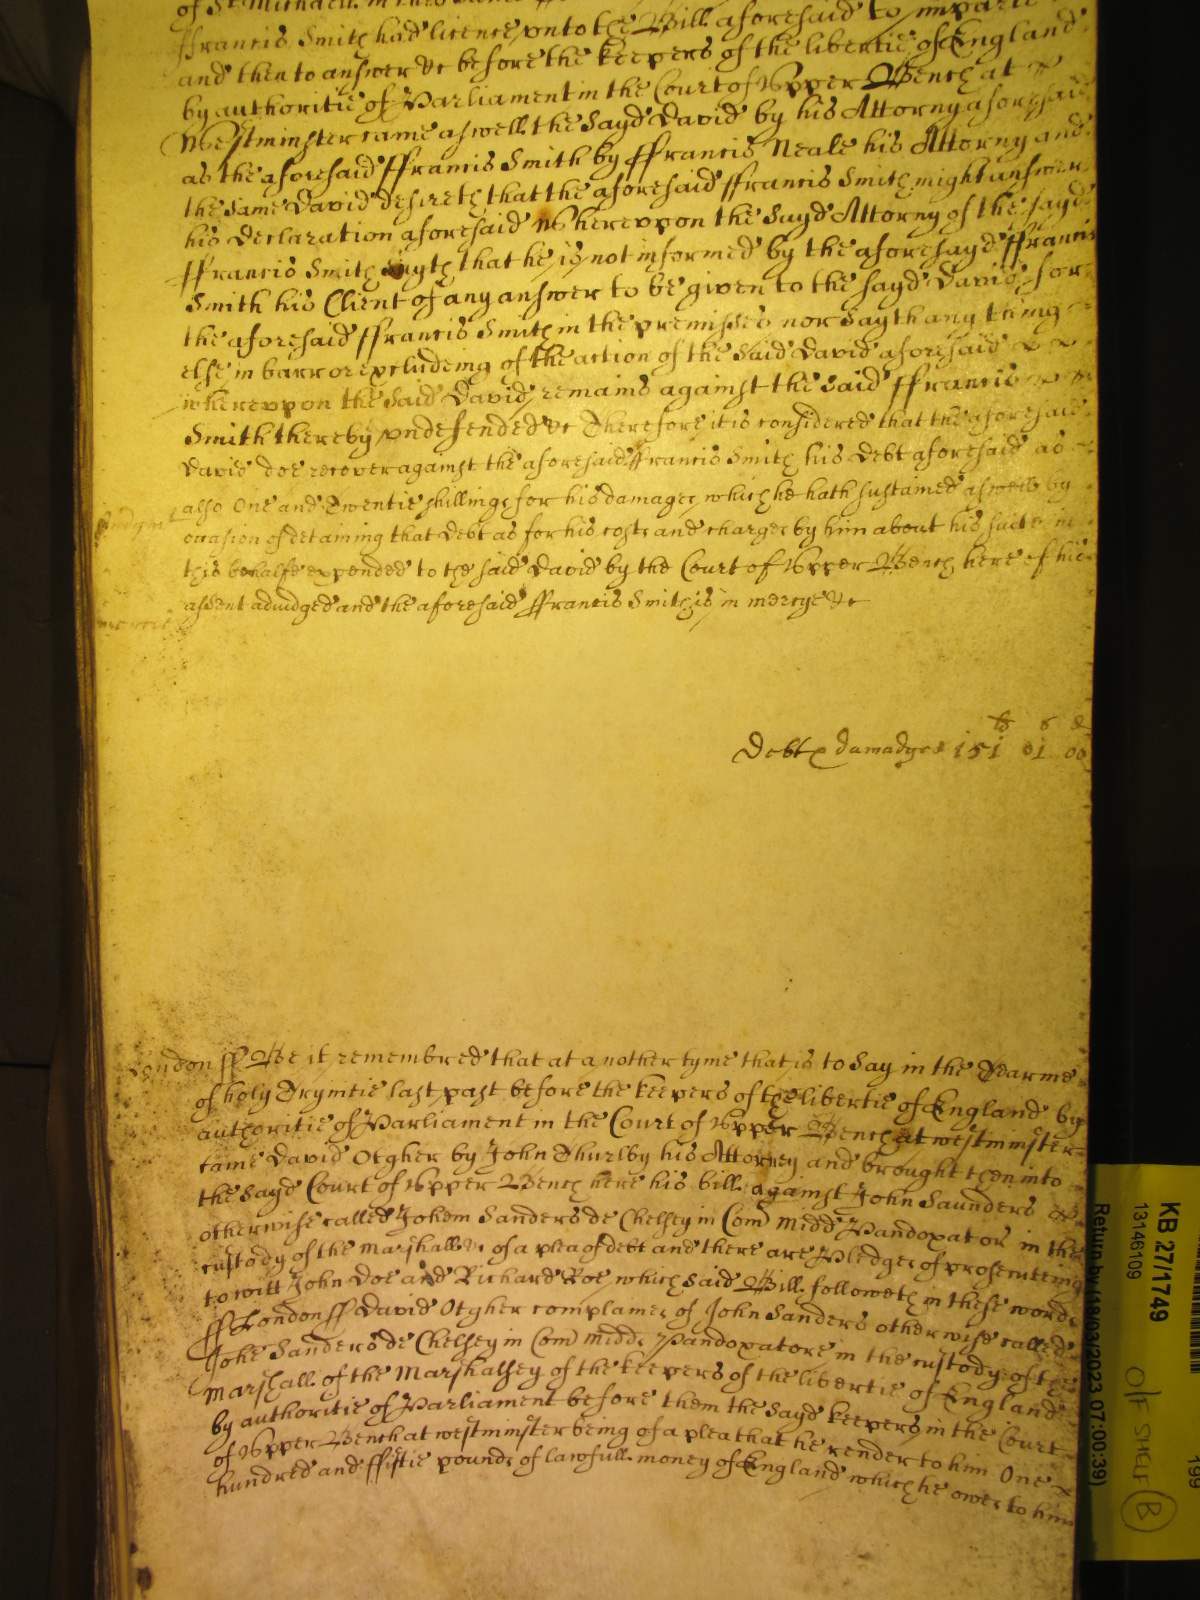 of St. Michaell in
ffrancis Smith had licence vnto the Bill aforesaid to imparle
and then to answer &c before the keepers of the libertie of England
by authoritie of Parliament in the Court of Vpper Bench at
Westminster came aswell the Sayd David by his Attorny aforesaid
as the aforesaid ffrancis Smith by ffrancis Neale his Attorny and
the same David desireth that the aforesaid ffrancis Smith might answer
his Declaration aforesaid Wherevpon the Sayd Attorny of the sayd
ffrancis Smith sayth that he is not informed by the aforesayd ffrancis
Smith his Client of any answer to be given to the sayd David for
the aforesaid ffrancis Smith in the premisses nor Sayth any thing
else in barr or excludeing of the action of the Said David aforesaid
wherevpon the Said David remains against the Said ffrancis
Smith thereby vndefended &c Therefore it is considered that the aforesaid
David doe recover against the aforesaid ffrancis Smith his Debt aforesaid as
also One and Twentie shillings for his damages which he hath sustained aswell by
Judgmt
occasion of detaining that Debt as for his costs and charges by him about his suite in
this behalfe expended to the said David by the Court of Vpper Bench here of his
assent adiudged and the aforesaid ffrancis Smith is in mercye &c
mercie
li s d
Debt & damadges 151 01 00
London ff Be it remembred that at another tyme that is to Say in the Tearme
of holy Trynitie last past before the keepers of the libertie of England by
authoritie of Parliament in the Court of Vpper Bench at westminster
came David Otgher by John Thurlby his Attorney and brought then into
the Sayd Court of Vpper Bench here his bill against John Saunders
otherwise called Johem Sanders de Chelsey in Com Midd Pandoxator in the
custody of the Marshall &c of a plea of debt and there are Pledges of prosecuteing
to witt John Doe and Richard Roe which Said Bill followeth in these words
ff London ff David Otgher complaines of John Sanders otherwise called
Johe Sanders de Chelsey in Com Midd Pandoxatore in the custody of the
Marshall of the Marshalsey of the keepers of the libertie of England
by authoritie of Parliament before them the Sayd keepers in the Court
of Vpper Bench at westminster being of a plea that he render to him One
hundred and ffiftie pounds of lawfull money of England which he owes to him
KB 27/1749
13146109
Return by (18/03/2023 07:00:39)
199